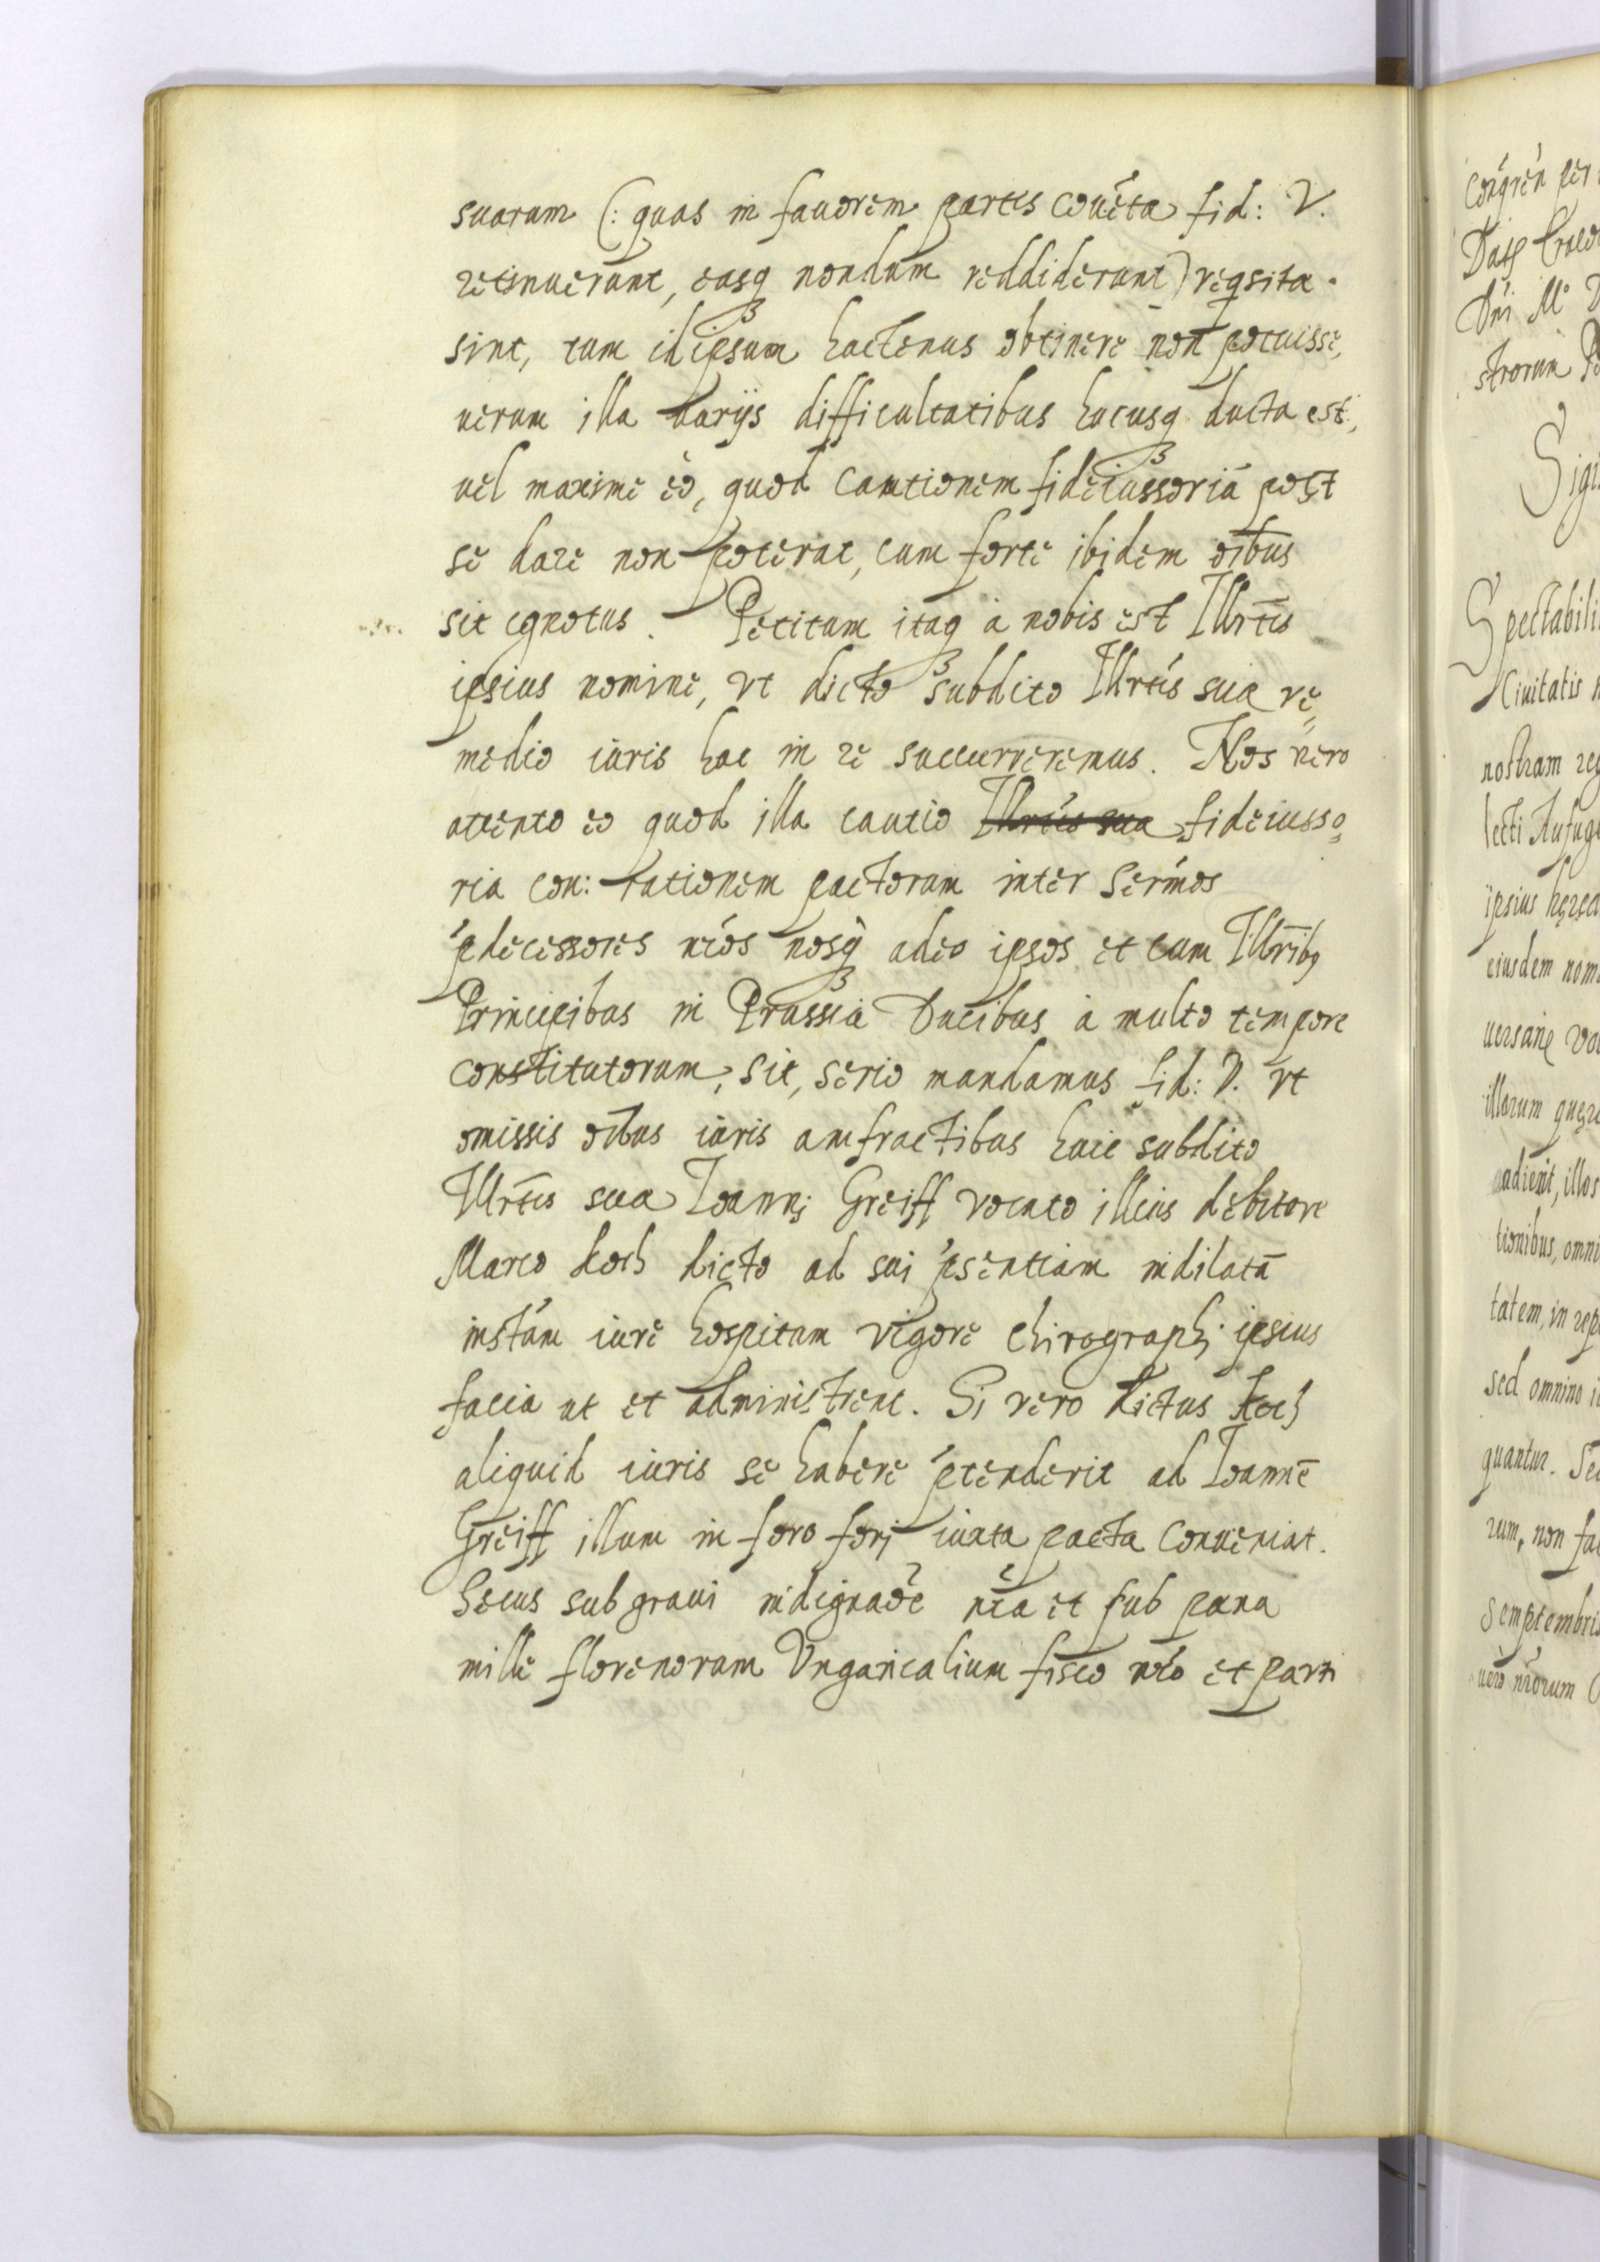 suarum (: quas in fauorem partis couẽta fid: V.
retinuerunt, easq₃ nondum reddiderunt) reqsita
sint, tum id ipsum hactenus obtinere non potuisse,
uerum illa uarijs difficultatibus hucusq₃ ducta est,
uel maxime eò, quod cautionem fideiussoriã post
se dare non poterat, cum forte ibidem oĩbus
sit ignotus. Petitum itaq₃ à nobis est Illrtis
ipsius nomine, vt dicto subdito Illrtis suæ re
medio iuris hac in re succurreremus. Nos vero
attento eo quod illa cautio Illrtis suæ fideiusso
ria con: rationem pactorum inter Sermos
p̃decessores nros nosq₃ adeo ipsos et cum Illribq
Principibus in Prussia Ducibus à multo tempore
constitutorum, sit, serio mandamus fid: V. vt
omissis oĩbus iuris amfractibus huic subdito
Illrtis suæ Ioannj Greiff vocato illius debitore
Marco Koch dicto ad sui p̃sentiam indilatã
instãm iure hospitum vigore Chirographi ipsius
facia ut et administrent. Si vero dictus Koch
aliquid iuris se habere p̃tenderit ad Ioannẽ
Greiff illum in foro forj iuxta pacta conueniat.
Secus sub graui indignaõe nrã et sub pæna
mille florenorum Vngaricalium fisco nro et parti

Congrẽn per
Dni M. D
strorum
Sigi
Spectabili
Ciuitatis
nostram reg
ipsius
eiusdem nom
illorum
audient, illos
tionibus, omni
tatem, in rep
sed omnino
quantur.
rum, non fa
Semptembris
uero nrorum